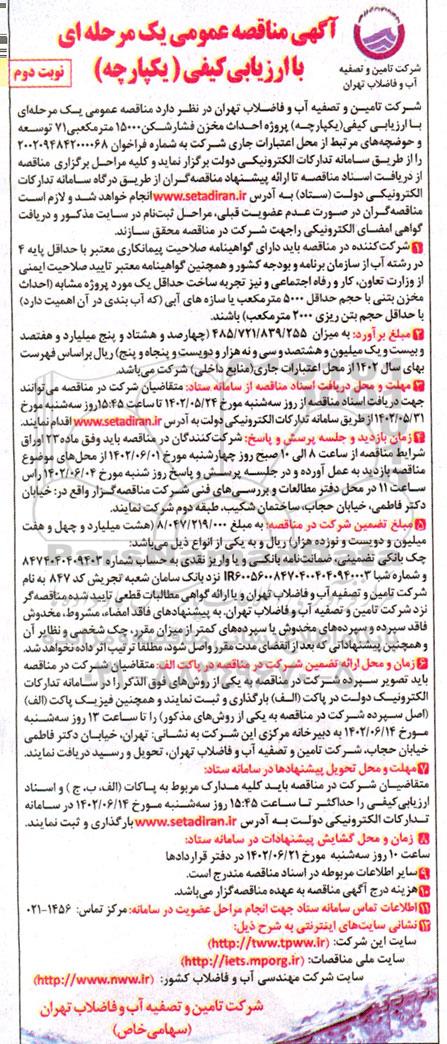 آگهی مناقصه عمومی یک مرحله ای
با ارزیابی کیفی ( یکپارچه)
نوبت دوم
شرکت تامین و تصفیه
آب و فاضلاب تهران
شرکت تامین و تصفیه آب و فاضلاب تهران در نظر دارد مناقصه عمومی یک مرحله‌ای
با ارزیابی کیفی (یکپارچه)، پروژه احداث مخزن فشارشکن ۱۵۰۰۰ مترمکعبی ۷۱ توسعه
و حوضچه‌های مرتبط از محل اعتبارات جاری شرکت به شماره فراخوان ۲۰۰۲۰۹۴۸۴۲۰۰۰۰۶۸
را از طریق سامانه تدارکات الکترونیکی دولت برگزار نماید و کلیه مراحل برگزاری مناقصه
از دریافت اسناد مناقصه تا ارائه پیشنهاد مناقصه‌گران از طریق درگاه سامانه تدارکات
الکترونیکی دولت (ستاد) به آدرس www.setadiran.ir انجام خواهد شد و لازم است
مناقصه‌گران در صورت عدم عضویت قبلی، مراحل ثبت‌نام در سایت مذکور و دریافت
گواهی امضای الکترونیکی را جهت شرکت در مناقصه محقق سازند.
۱ شرکت‌کننده در مناقصه باید دارای گواهینامه صلاحیت پیمانکاری معتبر با حداقل پایه ۴
در رشته آب از سازمان برنامه و بودجه کشور و همچنین گواهینامه معتبر تایید صلاحیت ایمنی
از وزارت تعاون، کار و رفاه اجتماعی و نیز تجربه ساخت حداقل یک مورد پروژه مشابه (احداث
مخزن بتنی با حجم حداقل ۵۰۰۰ مترمکعب یا سازه های آبی (که آب بندی در آن اهمیت دارد)
با حداقل حجم بتن ریزی ۲۰۰۰ مترمکعب) باشند.
۲ مبلغ برآورد: به میزان ۴۸۵/۷۲۱/۸۳۹/۲۵۵ (چهارصد و هشتاد و پنج میلیارد و هفتصد
و بیست و یک میلیون و هشتصد و سی و نه هزار و دویست و پنجاه و پنج) ریال براساس فهرست
بهای سال ۱۴۰۲ از محل اعتبارات جاری (منابع داخلی) شرکت می‌باشد.
۳ مهلت و محل دریافت اسناد مناقصه از سامانه ستاد: متقاضیان شرکت در مناقصه می‌توانند
جهت دریافت اسناد مناقصه از روز سه‌شنبه مورخ ۱۴۰۲/۰۵/۲۴ تا ساعت ۱۵:۴۵ روز سه‌شنبه مورخ
۱۴۰۲/۰۵/۳۱ از طریق سامانه تدارکات الکترونیکی دولت به آدرس www.setadiran.ir اقدام نمایند.
۴ زمان بازدید و جلسه پرسش و پاسخ: شرکت‌کنندگان در مناقصه باید وفق ماده ۲۳ اوراق
شرایط مناقصه از ساعت ۸ الی ۱۰ صبح روز چهارشنبه مورخ ۱۴۰۲/۰۶/۰۱ از محل‌های موضوع
مناقصه بازدید به عمل آورده و در جلسه پرسش و پاسخ روز شنبه مورخ ۱۴۰۲/۰۶/۰۴ راس
ساعت ۱۱ در محل دفتر مطالعات و بررسی‌های فنی شرکت مناقصه‌گزار واقع در: خیابان
دکتر فاطمی، خیابان حجاب، ساختمان شکیب، طبقه دوم شرکت نمایند.
۵ مبلغ تضمین شرکت در مناقصه: به مبلغ ۸/۰۴۷/۲۱۹/۰۰۰ (هشت میلیارد و چهل و هفت
میلیون و دویست و نوزده هزار) ریال و به یکی از انواع ذیل می‌باشد:
چک بانکی تضمینی، ضمانت‌نامه بانکی و یا واریز نقدی به حساب شماره ۸۴۷۴۰۴۰۹۴۰۳
نزد بانک سامان شعبه تجریش کد ۸۴۷ به نام
شرکت تامین و تصفیه آب و فاضلاب تهران و یا ارائه گواهی مطالبات قطعی تایید شده مناقصه‌گر
نزد شرکت تامین و تصفیه آب و فاضلاب تهران. به پیشنهادهای فاقد امضاء، مشروط، مخدوش
فاقد سپرده و سپرده‌های مخدوش یا سپرده‌های کمتر از میزان مقرر، چک شخصی و نظایر آن
و همچنین پیشنهاداتی که بعد از انقضای مدت مقرر واصل شود، مطلقا ترتیب اثر داده نخواهد شد.
۶ زمان و محل ارائه تضمین شرکت در مناقصه در پاکت الف: متقاضیان شرکت در مناقصه
باید تصویر سپرده شرکت در مناقصه به یکی از روش‌های فوق الذکر را در سامانه تدارکات
الکترونیک دولت در پاکت (الف) بارگذاری و ثبت نمایند و همچنین فیزیک پاکت (الف)
(اصل سپرده شرکت در مناقصه به یکی از روش‌های مذکور) را تا ساعت ۱۳ روز سه‌شنبه
مورخ ۱۴۰۲/۰۶/۱۴ به دبیرخانه مرکزی این شرکت به نشانی: تهران، خیابان دکتر فاطمی
خیابان حجاب، شرکت تامین و تصفیه آب و فاضلاب تهران، تحویل و رسید دریافت نمایند.
۷ مهلت و محل تحویل پیشنهادها در سامانه ستاد:
متقاضیان شرکت در مناقصه باید کلیه مدارک مربوط به پاکات (الف، ب، ج ) و اسناد
ارزیابی کیفی را حداکثر تا ساعت ۱۵:۴۵ روز سه‌شنبه مورخ ۱۴۰۲/۰۶/۱۴ در سامانه
تدارکات الکترونیکی دولت به آدرس www.setadiran.ir بارگذاری و ثبت نمایند.
۸ زمان و محل گشایش پیشنهادات در سامانه ستاد:
ساعت ۱۰ روز سه‌شنبه مورخ ۱۴۰۲/۰۶/۲۱ در دفتر قراردادها
۹ سایر اطلاعات مربوطه در اسناد مناقصه مندرج است.
۱۰ هزینه درج آگهی مناقصه به عهده مناقصه‌گزار می‌باشد.
۱۱ اطلاعات تماس سامانه ستاد جهت انجام مراحل عضویت در سامانه: مرکز تماس: ۱۴۵۶-۰۲۱
۱۲ نشانی سایت‌های اینترنتی به شرح ذیل:
سایت این شرکت: (http://tww.tpww.ir)
سایت ملی مناقصات: (http://iets.mporg.ir)
سایت شرکت مهندسی آب و فاضلاب کشور: (http://www.nww.ir)
شرکت تامین و تصفیه آب و فاضلاب تهران
(سهامی خاص)